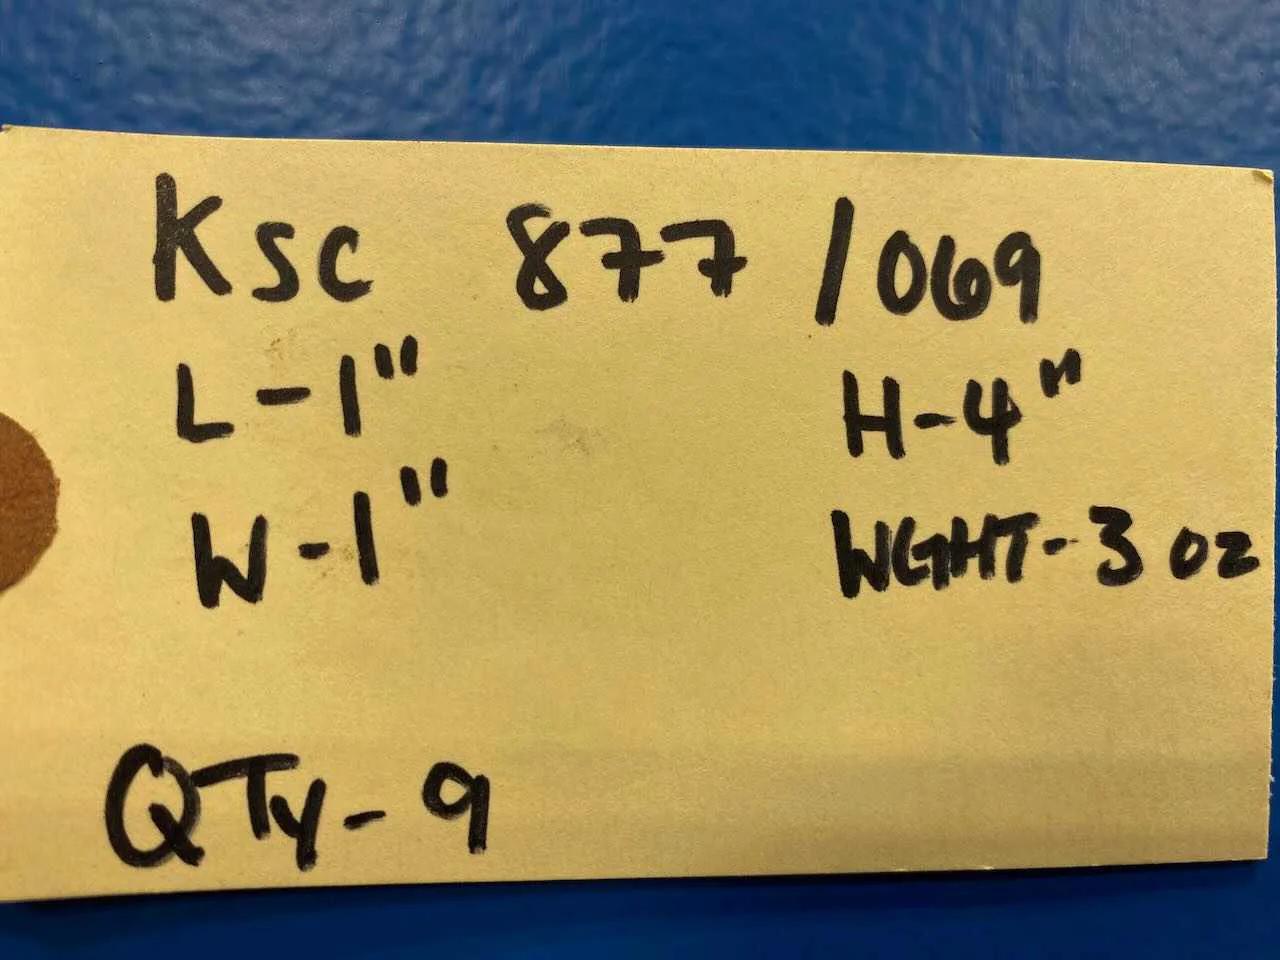 Ksc 877 /069
L-1" H-4"
W-1" WGHT-3 oz
QTy-9